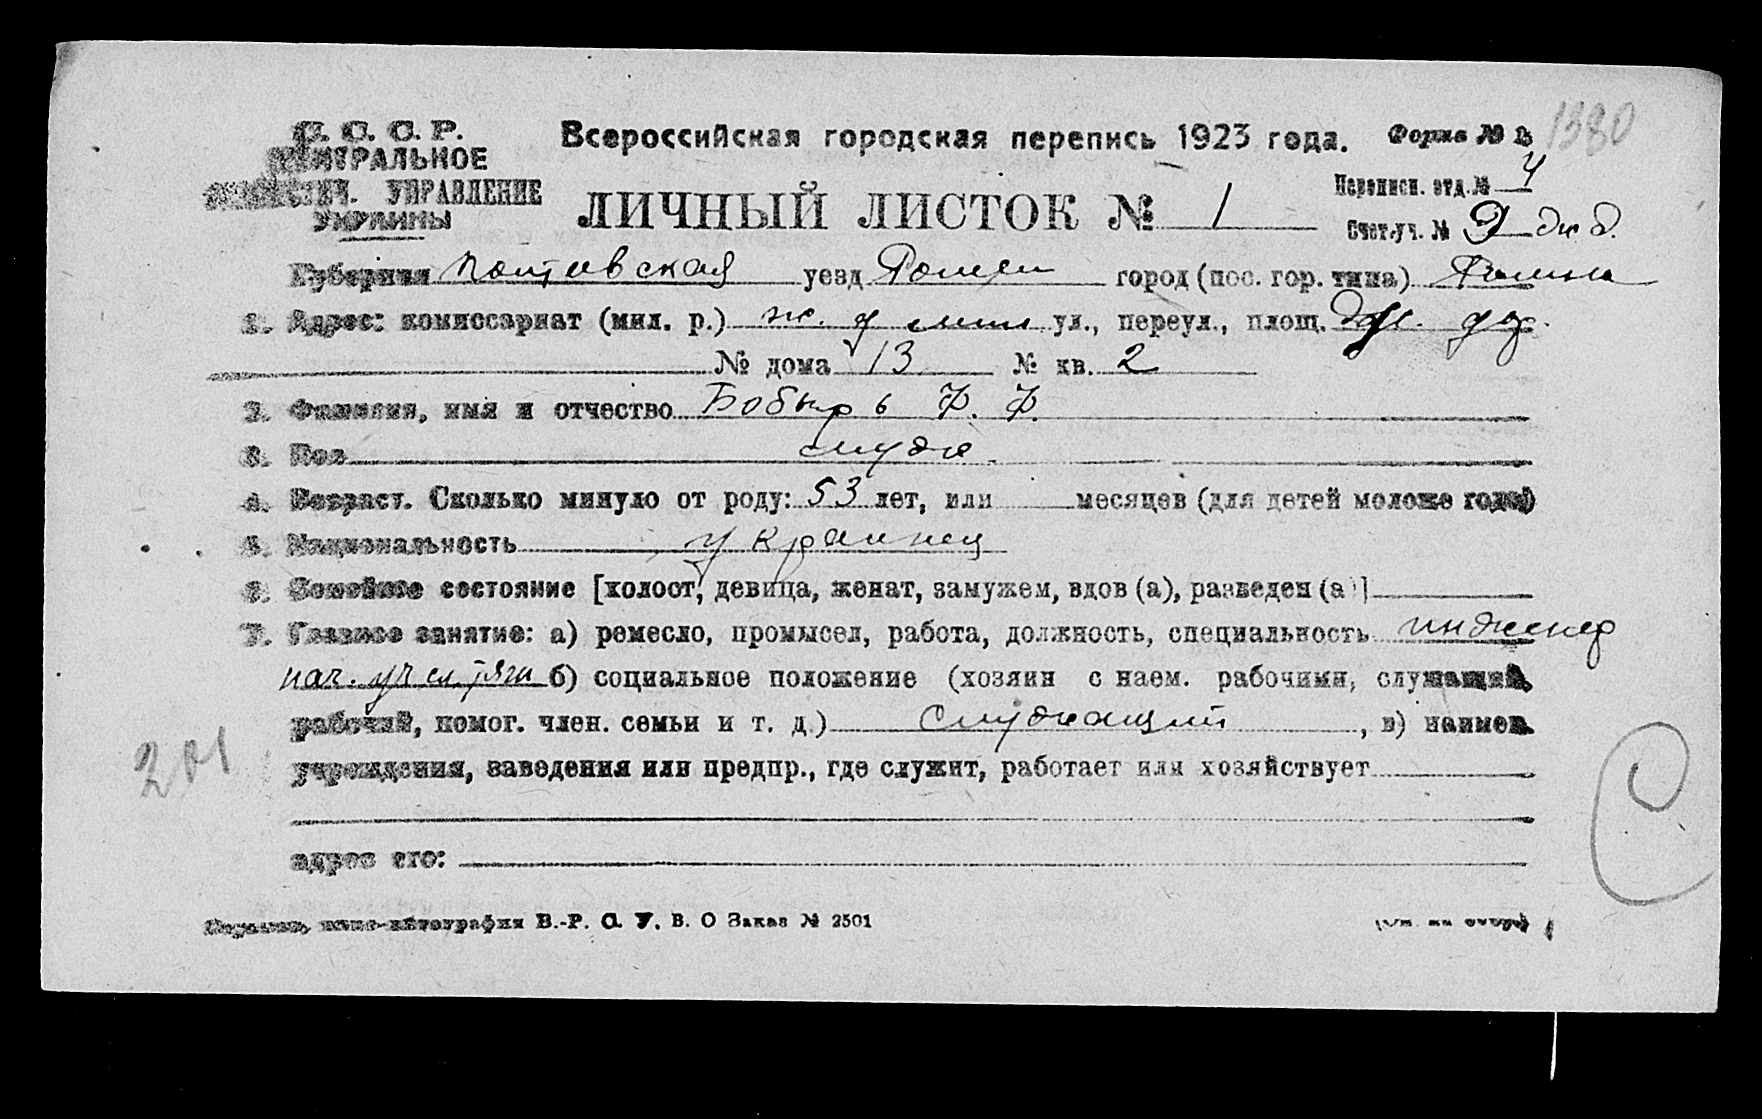 С. С. С. Р.
ЦЕНТРАЛЬНОЕ
СТАТИСТИЧ. УПРАВЛЕНИЕ
УКРАИНЫ
Всероссийская городская перепись 1923 года. Форма № 1380
ЛИЧНЫЙ ЛИСТОК № 1
Переписн. отд. № 4
Счет. уч. №
Губерния Полтавская уезд Ромен город (пос. гор. типа) Ромны
1. Адрес: комиссариат (мил. р.) ул., переул., площ.
№ дома 13 № кв. 2
2. Фамилия, имя и отчество Бобырь Ф. Ф.
3. Пол мужс.
4. Возраст. Сколько минуло от роду: 53 лет, или месяцев (для детей моложе года)
5. Национальность украинец
6. Семейное состояние [холост, девица, женат, замужем, вдов (а), разведен (а)]
7. Главное занятие: а) ремесло, промысел, работа, должность, специальность инженер
нач. уч сл. тяги б) социальное положение (хозяин с наем. рабочими, служащий,
рабочий, помог. член. семьи и т. д.) Служащий, в) наимен.
учреждения, заведения или предпр., где служит, работает или хозяйствует
адрес его:
201
В.-Р. С. У. В. О Заказ № 2501